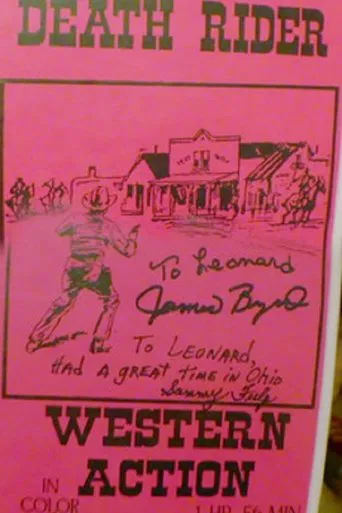 DEATH RIDER
To Leonard
James Byrd
TO LEONARD,
HAD A GREAT TIME IN Ohio
Sammy
WESTERN
ACTION
IN
COLOR
1 HR 56 MIN